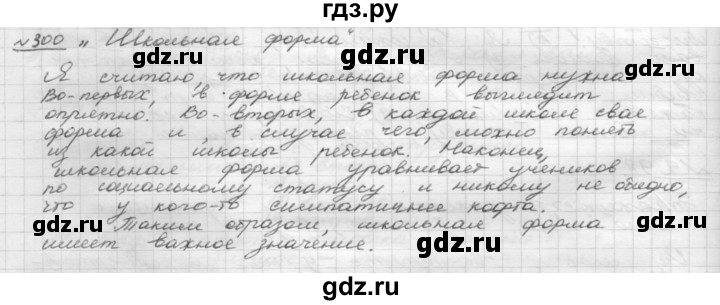 гдз.ру
№300 „Школьная форма"
gdz.ru gdz.ru
Я считаю, что школьная форма нужна.
Во-первых, в форме ребенок выглядит
gdz.ru gdz.ru
опрятно. Во-вторых, в каждой школе своя
форма и, в случае чего, можно понять
из какой школы ребенок. Наконец,
школьная форма уравнивает учеников
gdz.ru gdz.ru
по социальному статусу и никому не обидно,
что у кого-то симпатичнее кофта.
Таким образом, школьная форма
gdz.ru gdz.ru
имеет важное значение.
gdz.ru